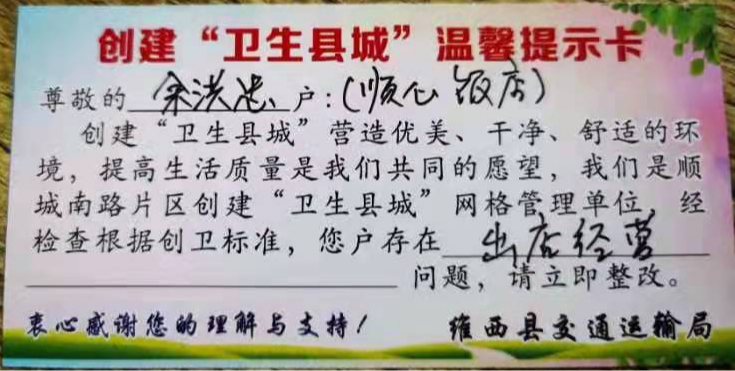 创建“卫生县城”温馨提示卡
尊敬的余洪忠户:(顺心饭店)
创建“卫生县城”营造优美、干净、舒适的环
境，提高生活质量是我们共同的愿望，我们是顺
城南路片区创建“卫生县城”网格管理单位，经
检查根据创卫标准，您户存在出店经营
问题，请立即整改。
衷心感谢您的理解与支持！ 维西县交通运输局